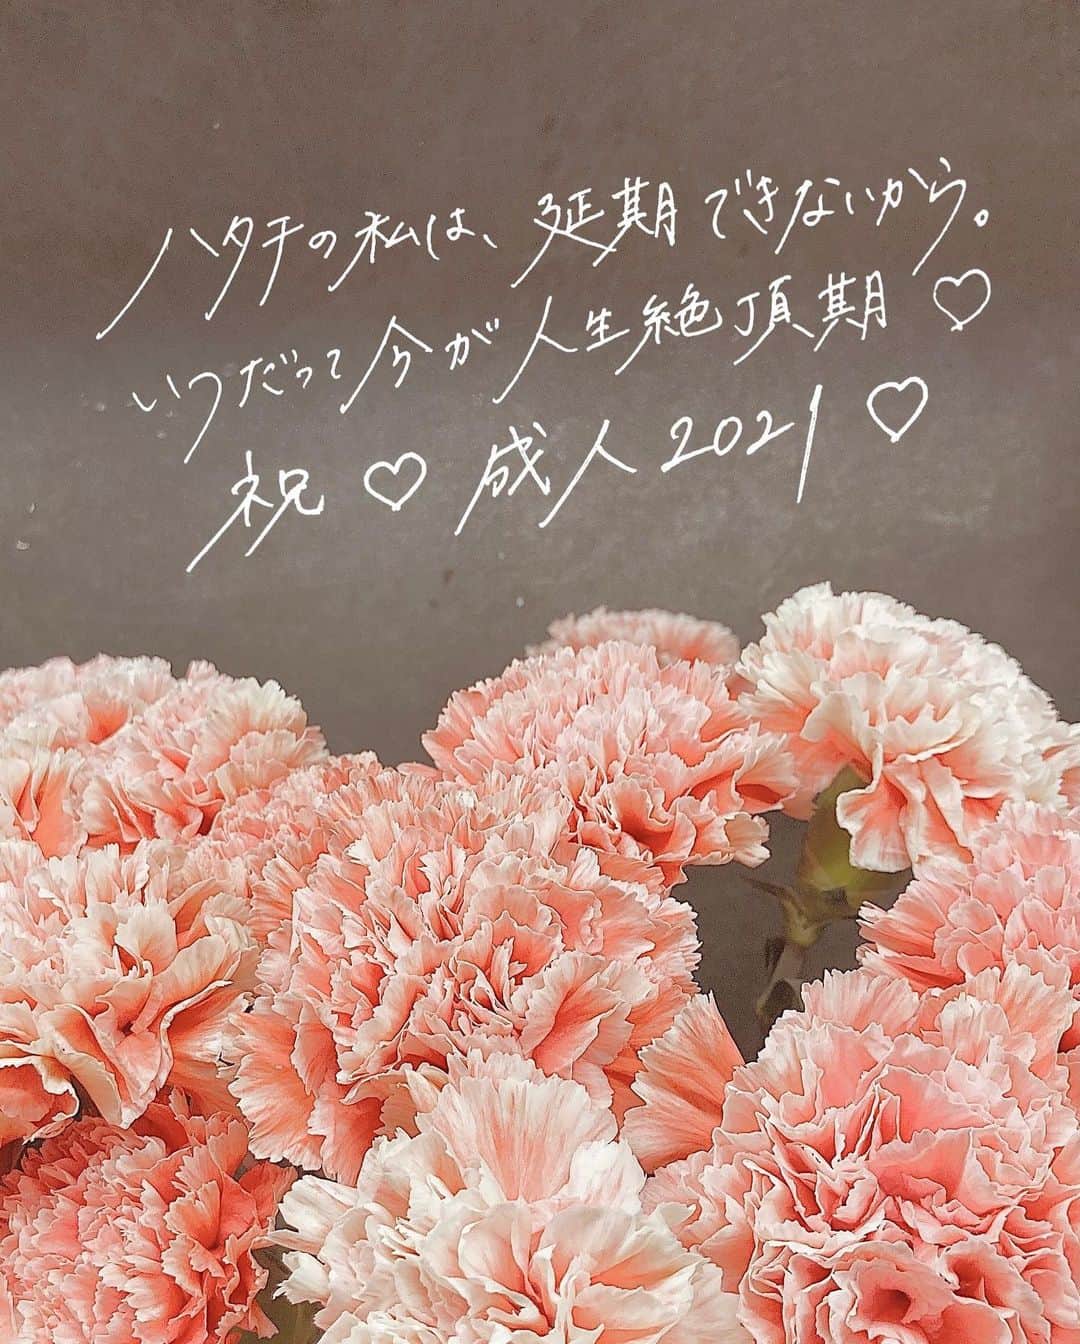 ハタチの私は、延期できないから。
いつだって今が人生絶頂期♡
祝♡成人2021♡